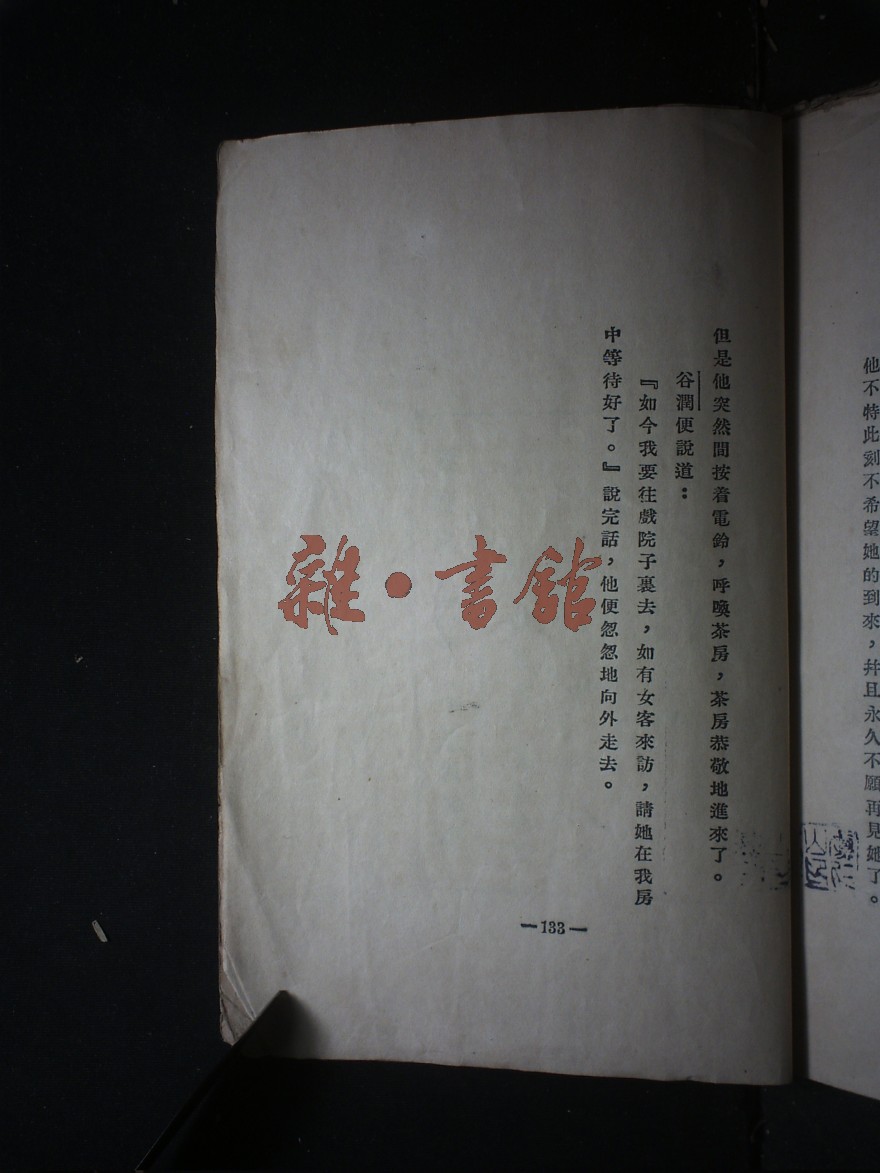 他不特此刻不希望她的到來，幷且永久不願再見她了。
但是他突然間按着電鈴，呼喚茶房，茶房恭敬地進來了。
谷潤便說道：
『如今我要往戲院子裏去，如有女客來訪，請她在我房
中等待好了。』說完話，他便怱怱地向外走去。
—133—
雜•書舘